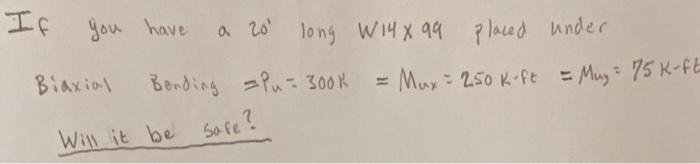 If you have a 20' long W14 x 99 placed under
Biaxial Bending = Pu = 300 K = Mux = 250 K-ft = Muy = 75 K-ft
Will it be safe?